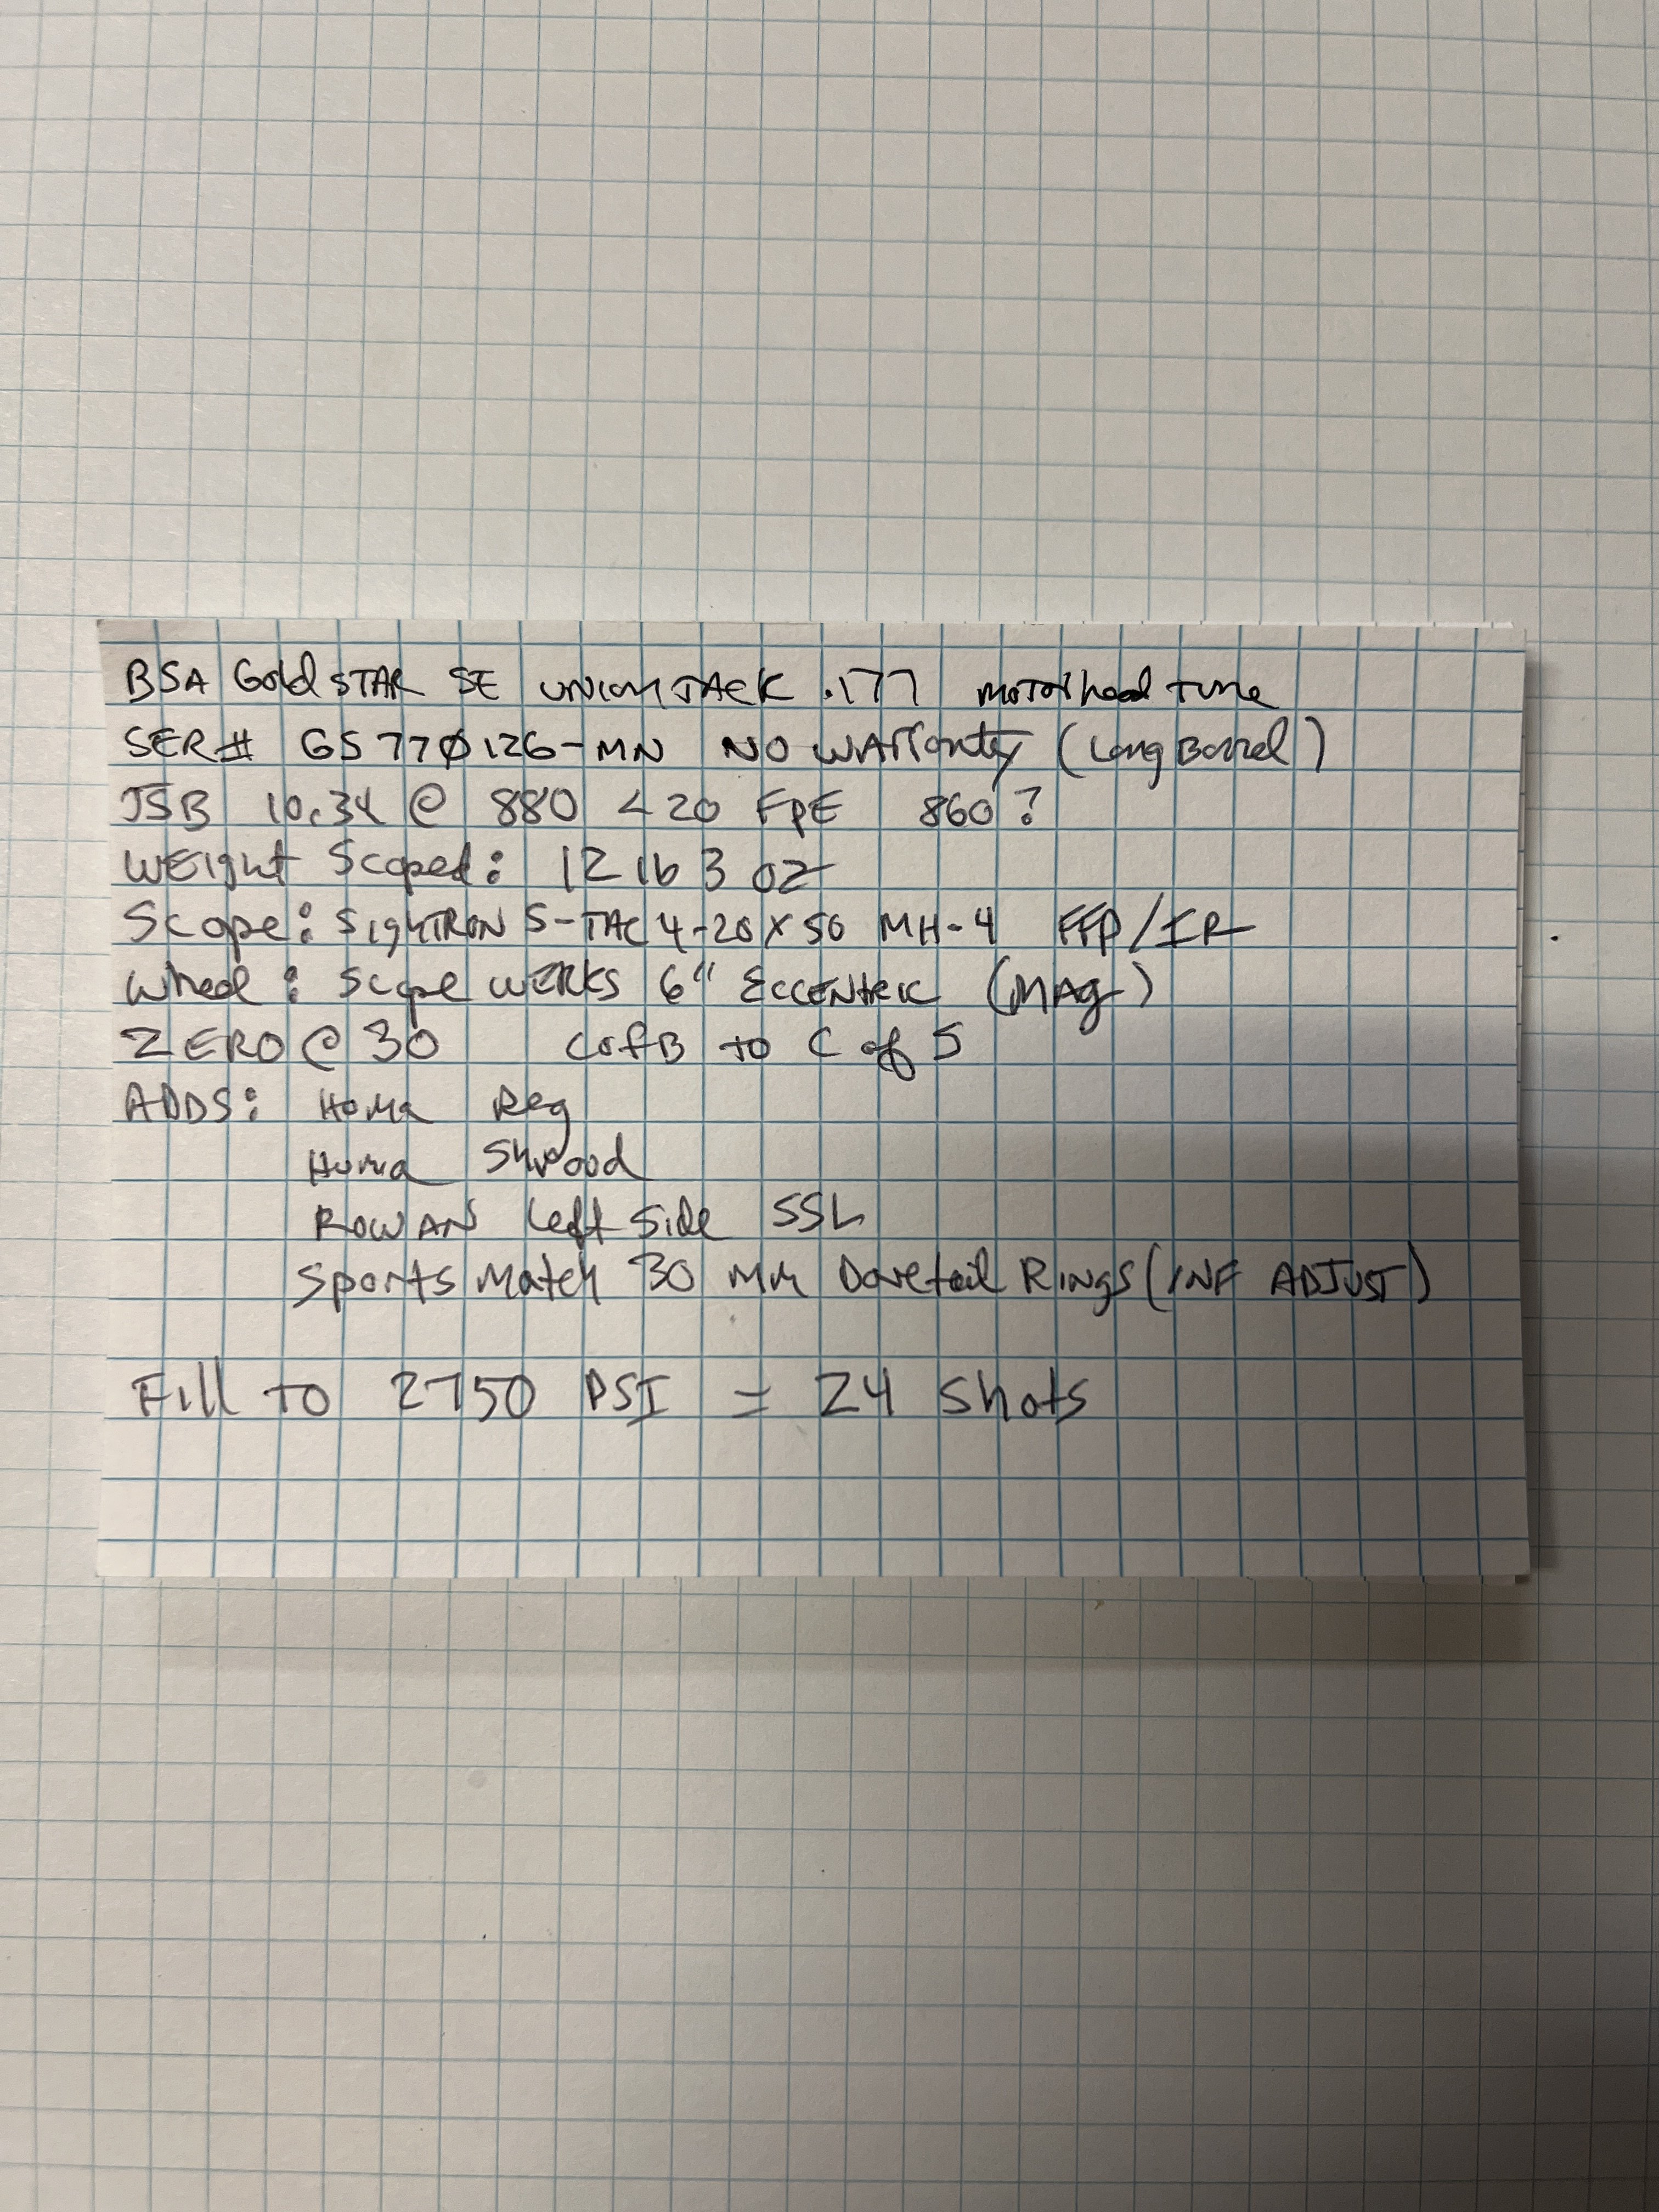 BSA Gold STAR SE UNION JACK .177 motorhead Tune
SER# GS77Ø126-MN NO WARRanty (Long Barrel)
JSB 10.34 @ 880 < 20 FPE 860?
WEIght Scoped: 12 lb 3 oz
Scope: SIghTRON S-TAC 4-20X50 MH-4 FFP/IR
Wheel: Scope WERKS 6" ECCENtRIC (MAg)
ZERO @ 30 CofB to C of S
ADDS: HuMa Reg
Huma Shroud
ROWAN Left Side SSL
Sports Match 30 MM Dovetail RINgS (INF ADJUST)
Fill TO 2750 PSI = 24 Shots